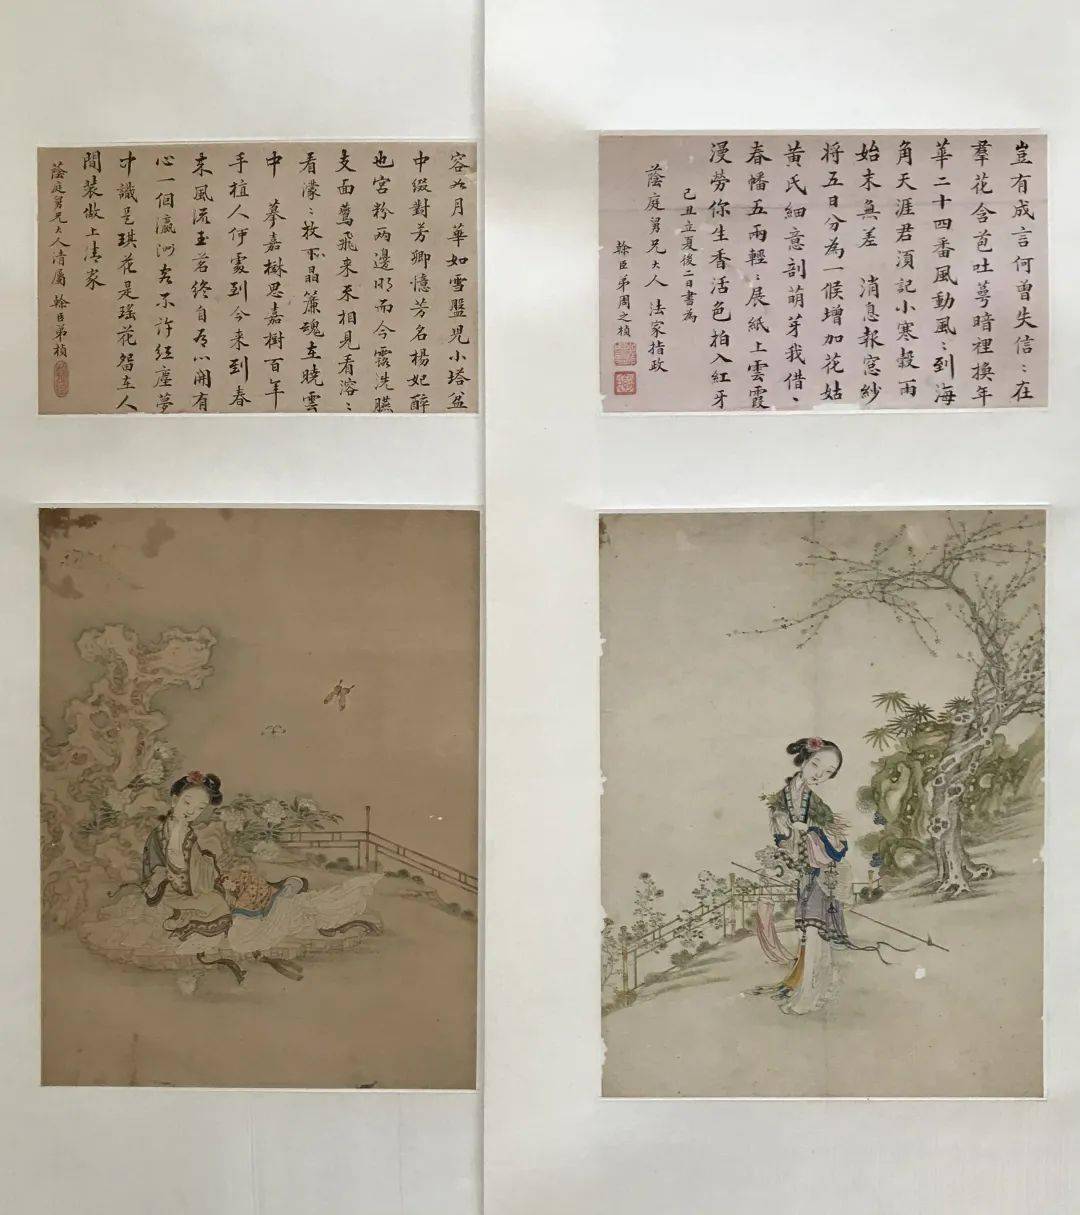 豈有成言何曾失信〻在
羣花含苞吐萼暗裡換年
華二十四番風動風〻到海
角天涯君須記小寒穀雨
始末無差 消息報窓紗
将五日分為一候增加花姑
黄氏細意剖萌芽我借〻
春幡五兩輕〻展紙上雲霞
漫勞你生香活色拍入紅牙
己丑立夏後二日書為
蔭庭舅兄大人 法家指政
翰臣弟周之楨
容如月華如雪盤兒小塔盆
中缀對芳卿憶芳名楊妃醉
也宮粉兩邊明而今露洗臙
支面鶯飛来未相見看溶〻
看濛〻放下晶簾魂在曉雲
中 摹嘉樹思嘉樹百年
手植人伊處到今来到春
来風流玉茗終自有心開有
心一個瀛洲不許紅塵夢
中識是琪花是瑶花留在人
間装傲上清家
蔭庭舅兄大人清屬 翰臣弟楨